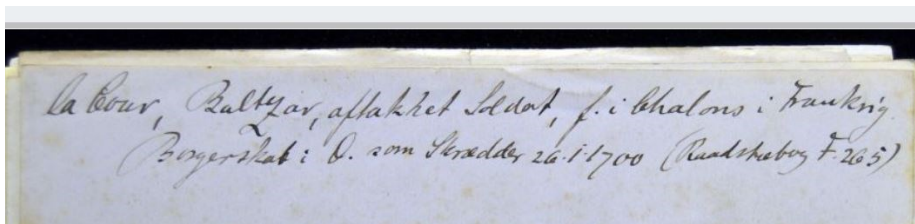 la Cour, Baltzar, aftakket Soldat, f. i Chalons i Frankrig.
Borgerskab i O. som Skrædder 26.1.1700 (Raadstuebog F. 265)